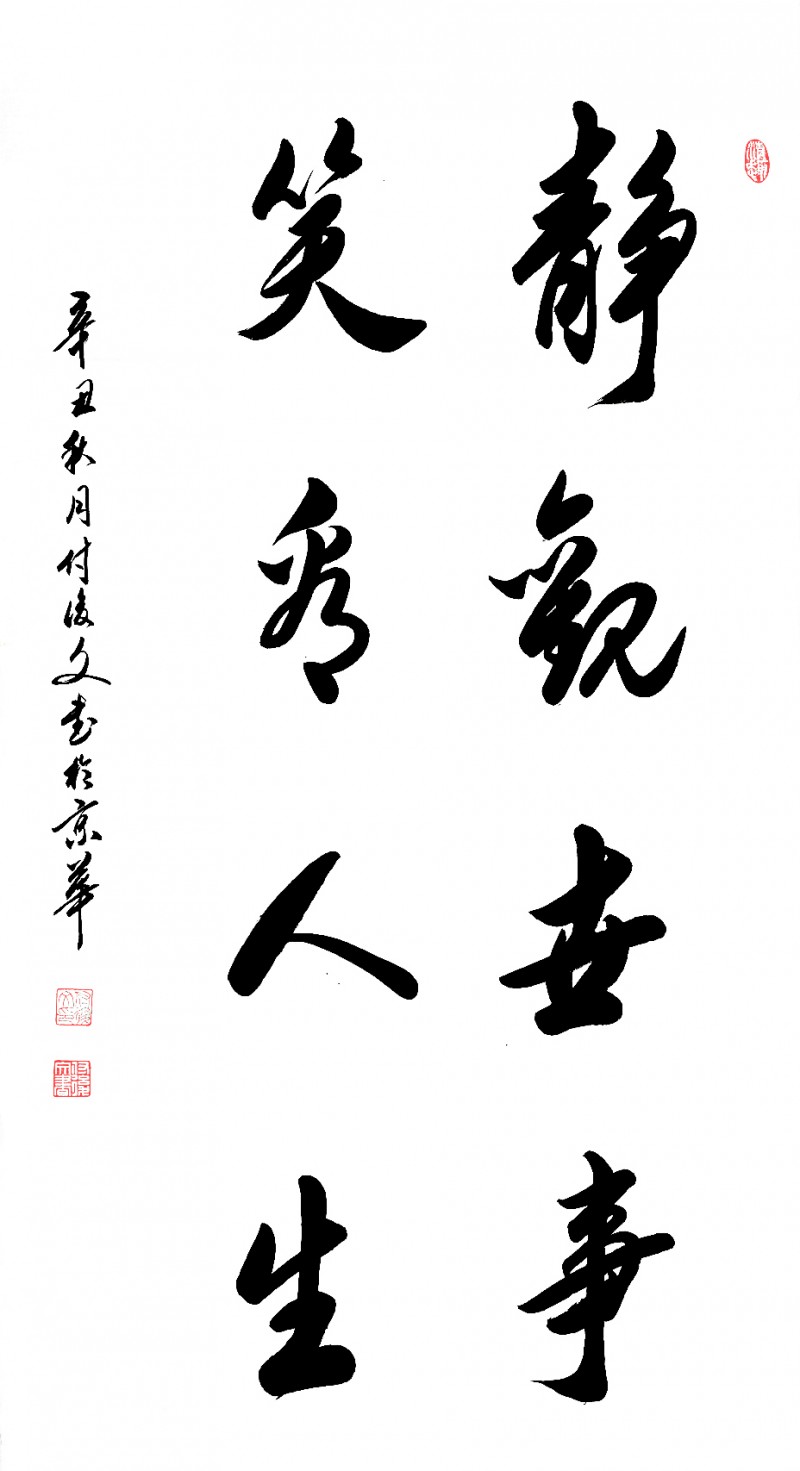 靜觀世事
笑看人生
辛丑秋月付俊文书於京華